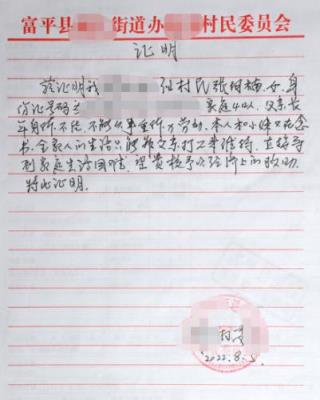 富平县 街道办 村民委员会
证明
兹证明我 村民张 楠,女,身
份证号码 家庭4口人,父亲长
年身体不佳,不能从事重体力劳动。本人和小妹又在念
书,全家人的生活只能靠父亲打工来维持,直接导
致家庭生活困难,望贵校予以经济上的救助。
特此证明。
村委
2022.8.5.